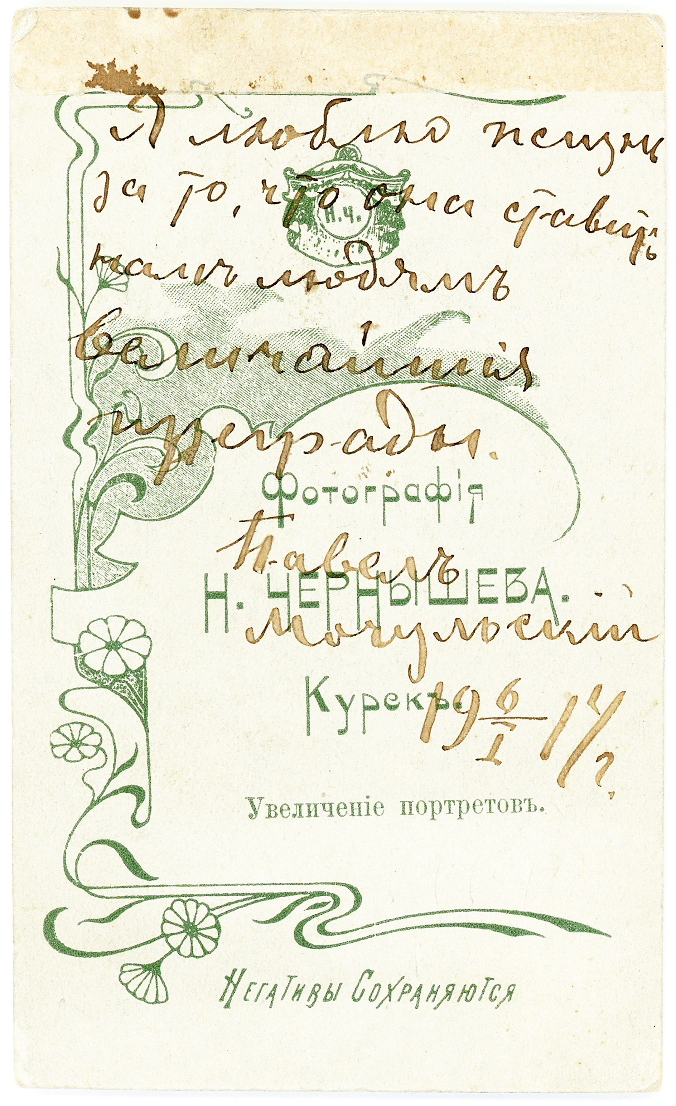 Я люблю жизнь
за то, что она ставитъ
намъ людямъ
величайшія
преграды.
Н.Ч.
Фотографія
Павелъ
Н. ЧЕРНЫШЕВА.
Мочульскій
Курскъ.
19 6/I 17 г.
Увеличеніе портретовъ.
Негативы Сохраняются